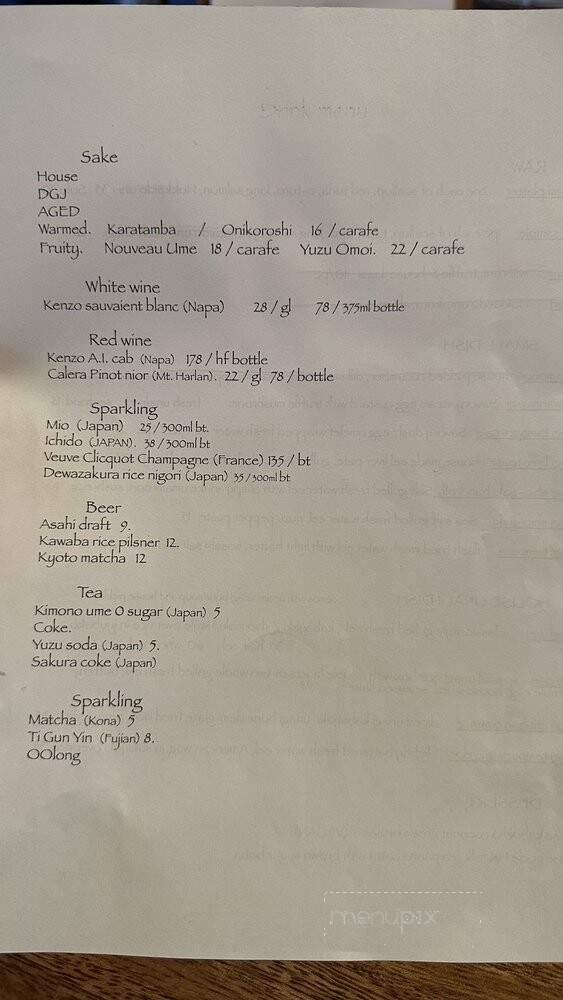 Sake
House
DGJ
AGED
Warmed. Karatamba / Onikoroshi 16 / carafe
Fruity. Nouveau Ume 18 / carafe Yuzu Omoi. 22 / carafe
White wine
Kenzo sauvaient blanc (Napa) 28 / gl 78 / 375ml bottle
Red wine
Kenzo A.I. cab (Napa) 178 / hf bottle
Calera Pinot nior (Mt. Harlan). 22 / gl 78 / bottle
Sparkling
Mio (Japan) 25 / 300ml bt.
Ichido (JAPAN). 38 / 300ml bt
Veuve Clicquot Champagne (France) 135 / bt
Dewazakura rice nigori (Japan) 35 / 300ml bt
Beer
Asahi draft 9.
Kawaba rice pilsner 12.
Kyoto matcha 12
Tea
Kimono ume 0 sugar (Japan) 5
Coke.
Yuzu soda (Japan) 5.
Sakura coke (Japan)
Sparkling
Matcha (Kona) 5
Ti Gun Yin (Fujian) 8.
OOlong
menupix